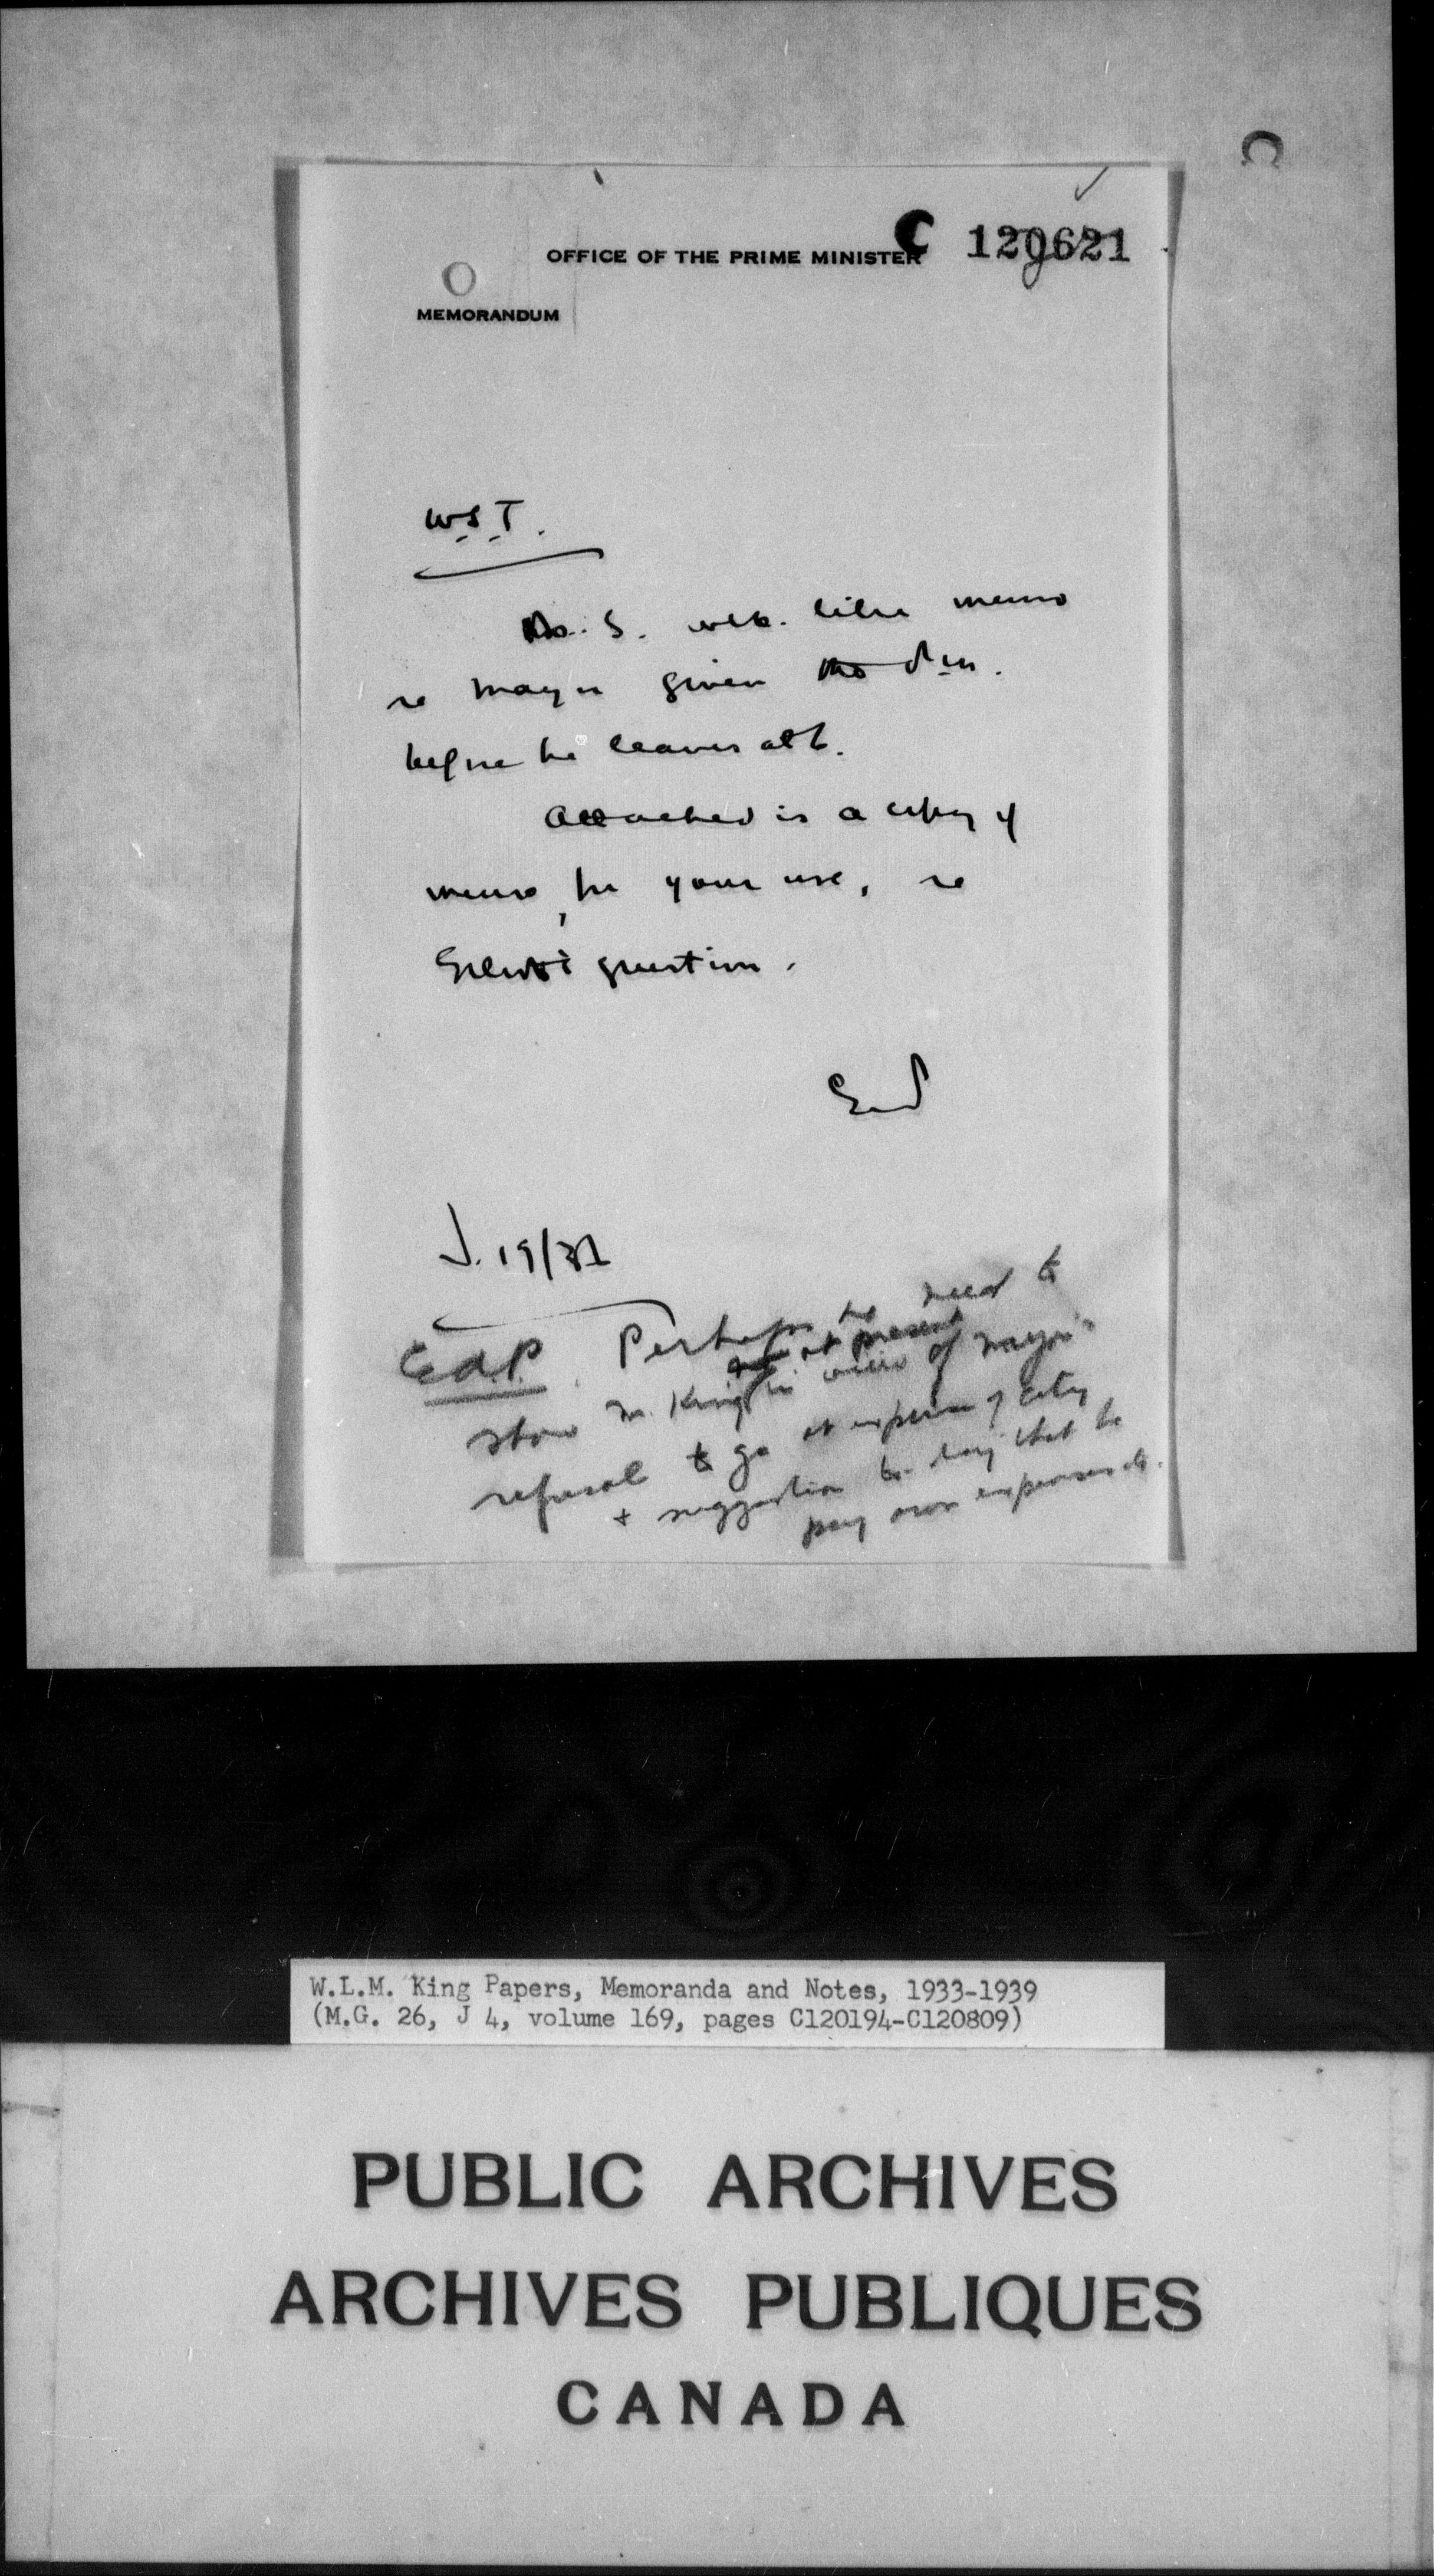 C 120621
OFFICE OF THE PRIME MINISTER
MEMORANDUM
W.S.T.
Dr. S. wld. like memo
re Mayor given P.M.
before he leaves
Attached is a copy of
memo, for your use, re
question.
J. 19/
E.A.P. Perhaps no need to
show Mr. King at present in view of Mayor's
refusal to go at expense of city
+ suggestion to-day that he
pay own expenses
W.L.M. King Papers, Memoranda and Notes, 1933-1939
(M.G. 26, J 4, volume 169, pages C120194-C120809)
PUBLIC ARCHIVES
ARCHIVES PUBLIQUES
CANADA